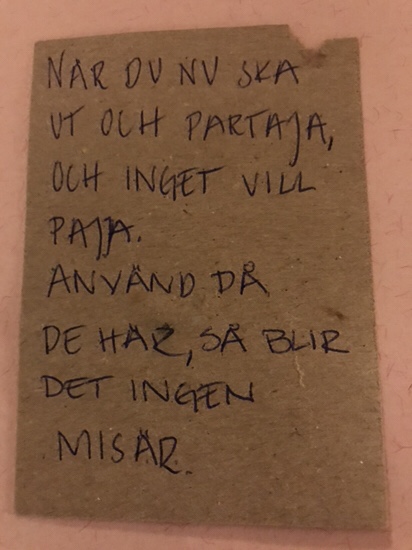 NÄR DU NU SKA
UT OCH PARTAJA,
OCH INGET VILL
PAJA.
ANVÄND DÅ
DE HÄR, SÅ BLIR
DET INGEN
MISÄR.